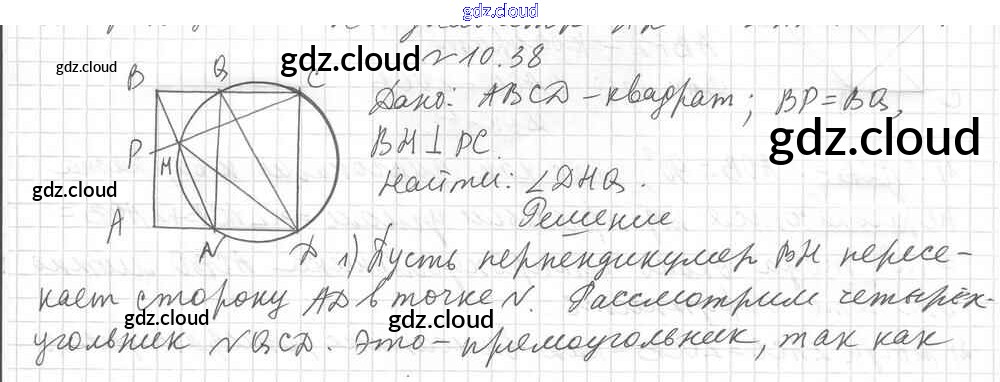 gdz.cloud
№10.38
gdz.cloud
gdz.cloud
B Q C
Дано: ABCD – квадрат; BP = BQ,
gdz.cloud
P
BH ⊥ PC.
H
gdz.cloud
Найти: ∠DHQ.
A
Решение
gdz.cloud
N D 1) Пусть перпендикуляр BH пересе-
кает сторону AD в точке N. Рассмотрим четырёх-
gdz.cloud gdz.cloud gdz.cloud
угольник NQCD. Это – прямоугольник, так как